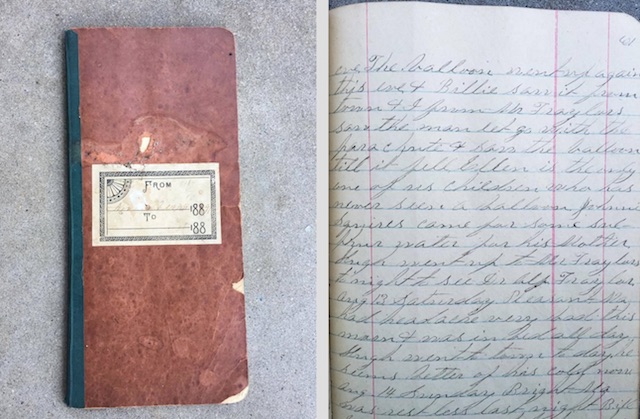 FROM
188
TO
188
61
eve The balloon went up again
this eve & Billie saw it from
town & I from Mr Traylors
saw the man let go with the
parachute & saw the balloon
till it fell Ellen is the only
one of us children who has
never seen a balloon
Squires came for some sul-
phur water for his Mother
Hugh went up to Mr Traylors
tonight to see Traylor
Aug 13 Saturday Pleasant Ma
had headache very bad this
morn & was in bed all day
Hugh went to day he
seems better of his cold now
Aug 14 Sunday Bright Ma
was restless last night